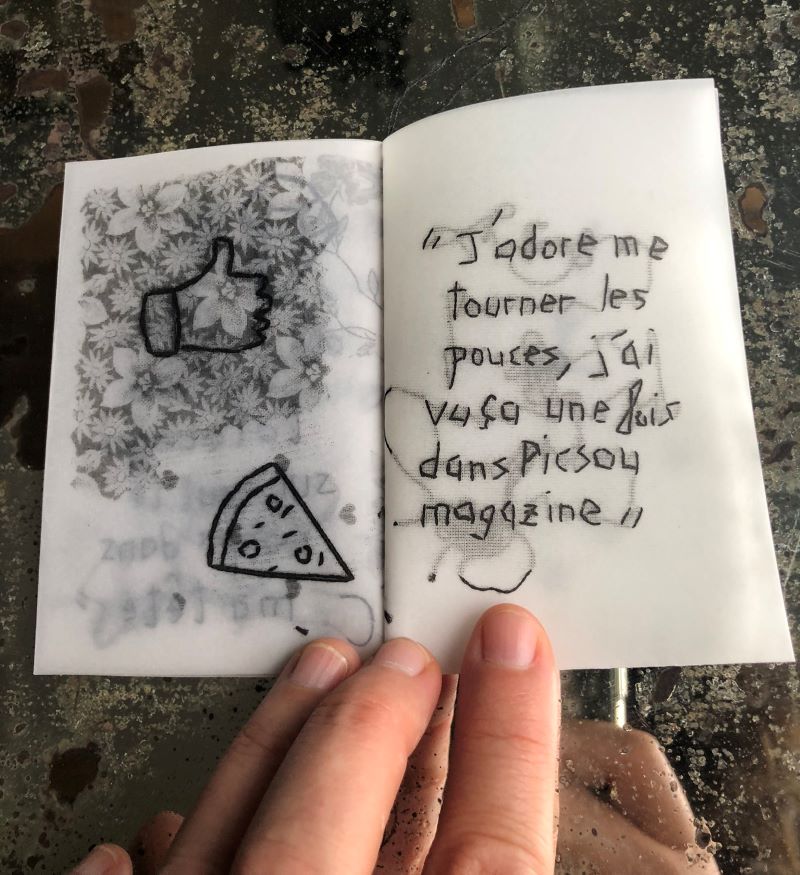 " J'adore me
tourner les
pouces, j'ai
vu ça une fois
dans Picsou
magazine "